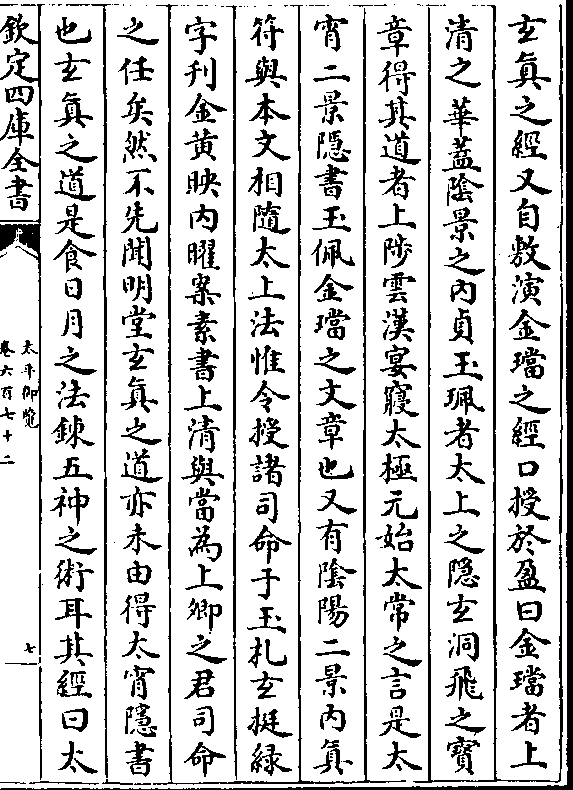 玄真之經又自敷演金璫之經口授於盈曰金璫者上
清之華蓋陰景之內貞玉珮者太上之隐玄洞飛之寶
章得其道者上陟雲漢宴寢太極元始太常之言是太
宵二景隱書玉佩金璫之文章也又有陰陽二景内真
符與本文相隨太上法惟令授諸司命子玉札玄挺緑
字刋金黄映内曜案素書上清與當為上卿之君司命
之任矣然不先聞明堂玄真之道亦未由得太宵隱書
也玄真之道是食日月之法錬五神之術耳其經曰太
欽定四庫全書
太平御覽
卷六百七十二
七